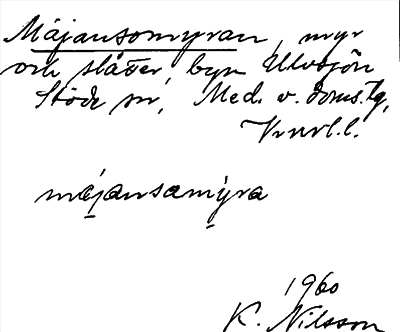 Måjansomyran, myr
och slåtter, byn Ulvsjön
Stöde sn, Med. v. doms. Tg,
Vnrl.l.
måjansamyra
1960
K. Nilsson